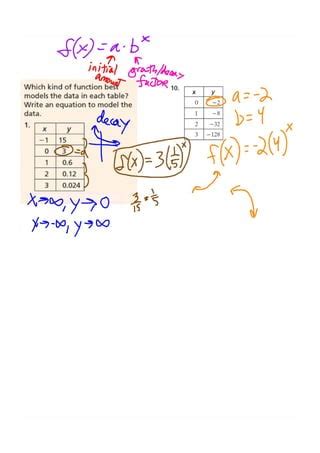 f(x) = a · b^x
initial amount
growth/decay factor
Which kind of function best
models the data in each table?
Write an equation to model the
data.
1.
x y
-1 15
0 3 = a
1 0.6
2 0.12
3 0.024
decay
f(x) = 3(1/5)^x
3/15 = 1/5
x→∞, y→0
x→-∞, y→∞
10.
x y
0 -2
1 -8
2 -32
3 -128
a = -2
b = 4
f(x) = -2(4)^x